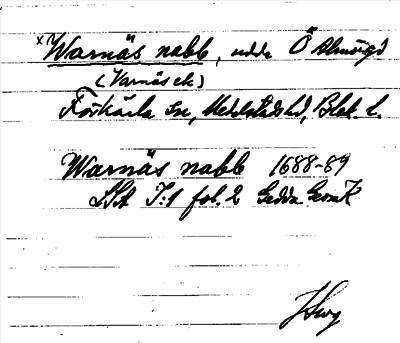 x Warnäs nabb, udde Ö Almö
(Varnäs ek)
Förkärla sn, Medelstads hd, Blek. l.
Warnäs nabb 1688-89
LSA I:1 fol. 2 Gedda GeomK